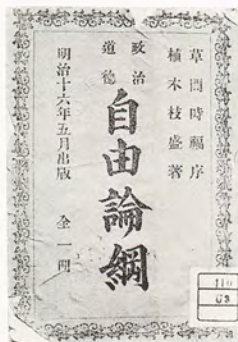 草間時福序
植木枝盛著
政治
道德
自由論綱
明治十六年五月出版 全一冊
110